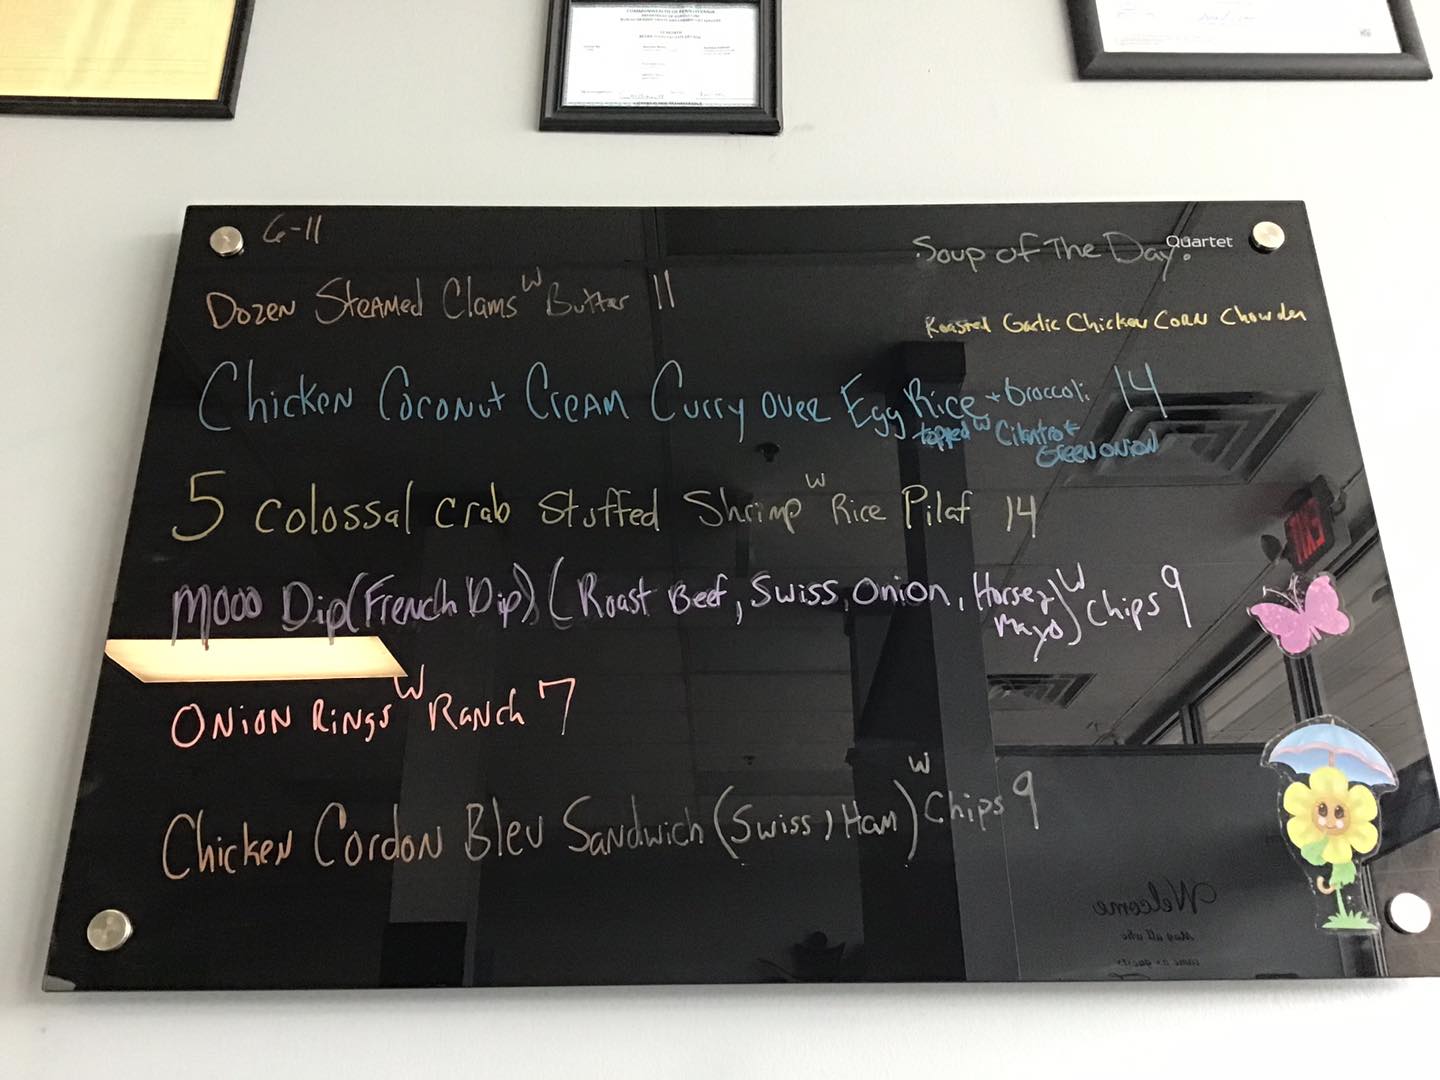 COMMONWEALTH OF PENNSYLVANIA
6-11
Quartet
Soup of The Day:
Dozen Steamed Clams w Butter 11
Roasted Garlic Chicken Corn Chowder
Chicken Coconut Cream Curry over Egg Rice + broccoli 14
topped w Cilantro +
Green onion
5 Colossal Crab Stuffed Shrimp w Rice Pilaf 14
Mooo Dip (French Dip) (Roast Beef, Swiss, Onion, Horsey Mayo) w Chips 9
Onion Rings w Ranch 7
Chicken Cordon Bleu Sandwich (Swiss, Ham) w Chips 9
EXIT
Welcome
may all who
come as guests